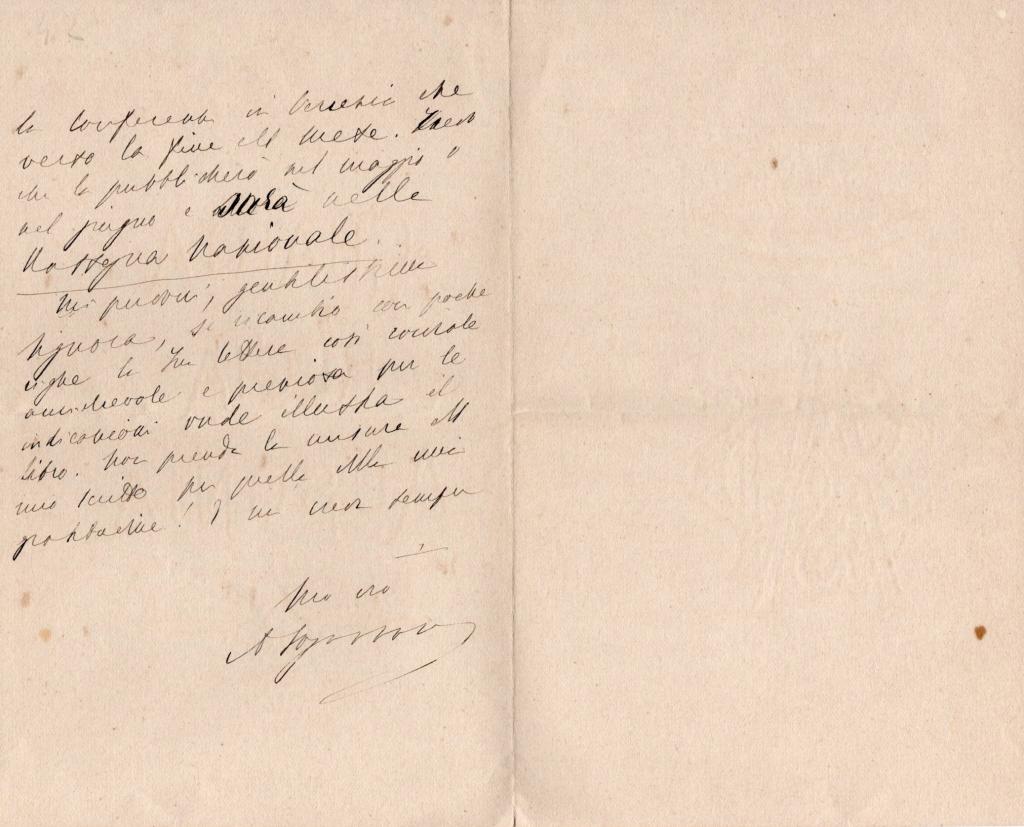 la conferenza in Venezia che
verso la fine del mese. Credo
che la pubblicherò nel maggio o
nel giugno e sarà nella
Rassegna Nazionale.
Mi perdoni, gentilissima
Signora, se ricambio con poche
righe la Sua lettera così cortese
amichevole e preziosa per le
indicazioni onde illustra il
libro. Non prenda la misura del
mio scritto per quella della mia
gratitudine! E mi creda sempre
Suo